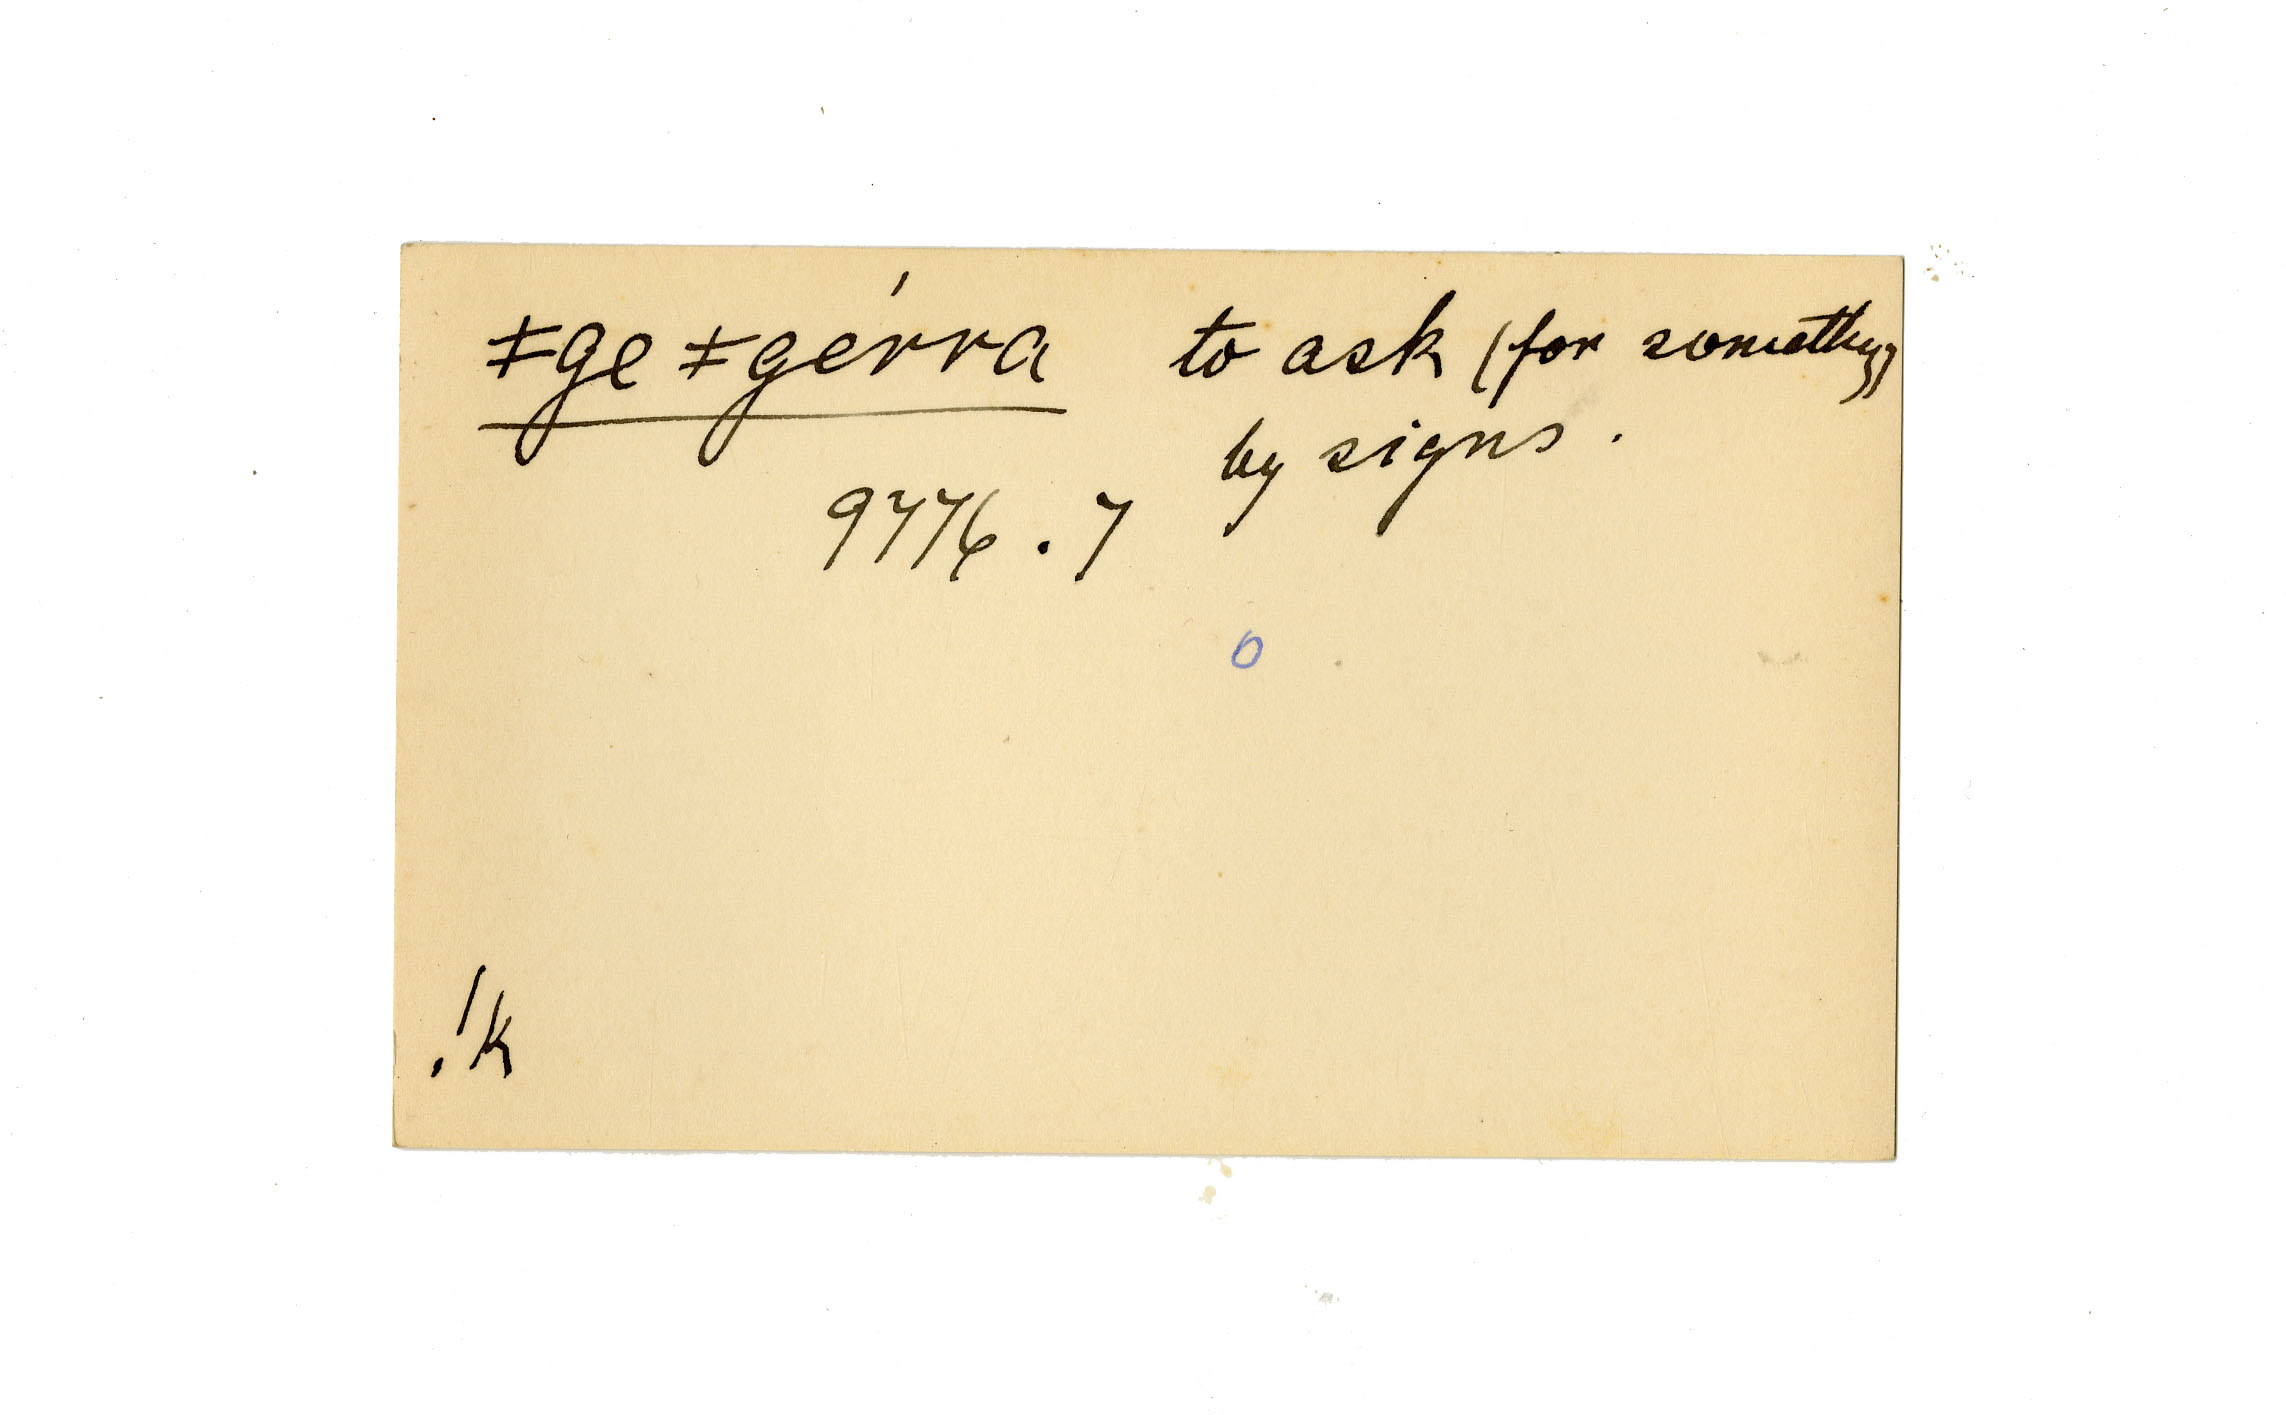 ǂge ǂgérra to ask (for somethg)
by signs.
9776.7
0
!k